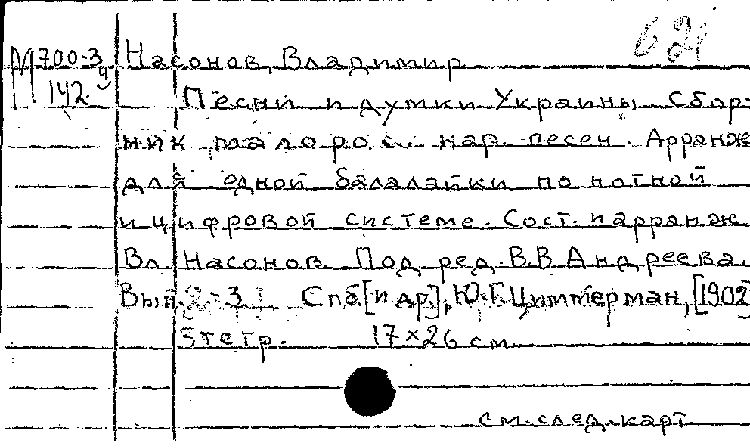 621
М 700-3ч Насонов, Владимир
142 Песни и думки Украины Сбор-
ник малорос. нар. песен. Арранж
для одной балалайки по нотной
и цифровой системе. Сост. и арранж.
Вл. Насонов. Под ред. В. В. Андреева.
Вып. 2-3 Спб. [и др.], Ю. Г. Циммерман, [1902]
3 тетр. 17×26 см
см. след. карт